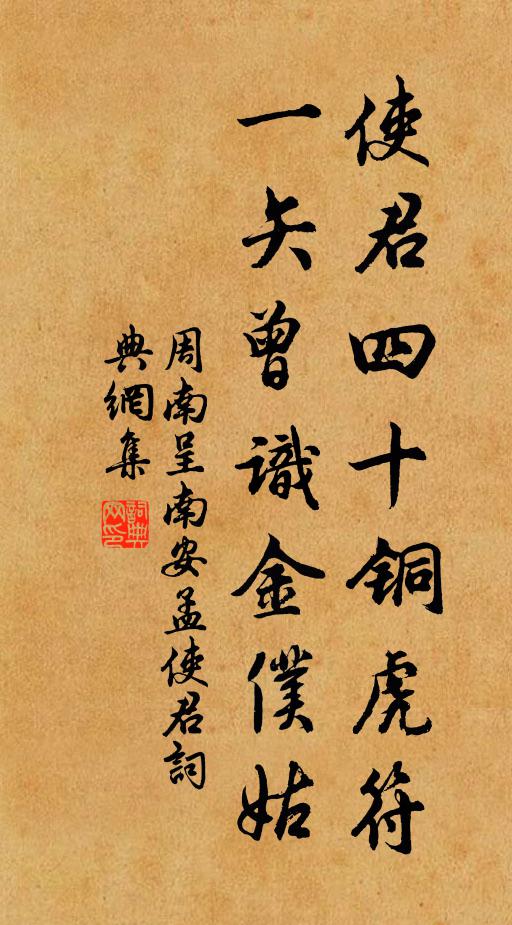 使君四十铜虎符
一矢曾識金僕姑
周南呈南安孟使君詞
典網集
詞典
网印